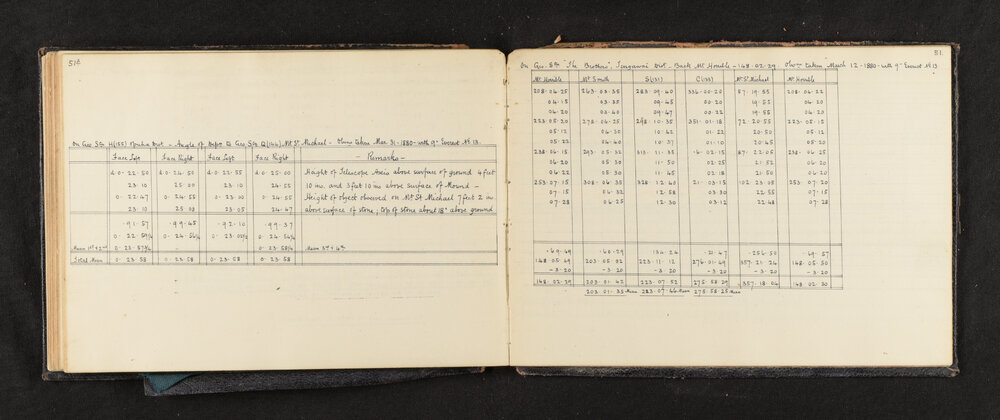 51a
On Geo. Stn H(155) District - Angle of Depn to Geo. Stn Q(144), Mt St Michael - Obsns taken Mar. 31-1880 - with 9" Everest No 13.
Face Left Face Right Face Left Face Right - Remarks -
d 0.22.50 d 0.24.50 d 0.22.55 d 0.25.00 Height of Telescope Axis above surface of ground 4 feet
23.10 25.00 23.10 24.55 10 ins and 3 feet 10 ins above surface of Mound -
0.22.47 0.24.55 0.23.00 0.24.55 Height of object observed on Mt St Michael 7 feet 2 in
23.10 25.00 23.05 24.47 above surface of stone; top of stone about 18" above ground
-91.57 -99.45 -92.10 -99.37
0.22.59¼ 0.24.56¼ 0.23.02½ 0.24.54¼
Mean 1st & 2nd 0.23.57¾ - 0.23.58¼ Mean 3rd & 4th
Total Mean 0.23.58 0.23.58 0.23.58 0.23.58
51
On Geo. Stn "The Brothers", Dist. Back Mt Horrible - 148.02.29. Obsns taken March 12-1880 - with 9" Everest No 13
Mt Horrible Mt Smith S(131) C(133) Mt St Michael Mt Horrible
208.04.25 263.03.35 283.09.40 336.00.20 57.19.55 208.04.22
04.15 03.35 09.45 00.20 19.55 04.20
04.20 03.40 09.47 00.22 19.55 04.20
223.05.20 278.04.25 298.10.35 351.01.18 72.20.55 223.05.15
05.12 04.30 10.42 01.22 20.50 05.12
05.22 04.40 10.37 01.10 20.45 05.20
238.06.15 293.05.32 313.11.35 6.02.15 87.22.06 238.06.25
06.20 05.30 11.50 02.25 21.52 06.20
06.22 05.30 11.45 02.18 21.50 06.20
253.07.15 308.06.35 328.12.40 21.03.15 102.23.05 253.07.20
07.15 06.32 12.58 03.30 22.55 07.15
07.28 06.25 12.30 03.12 22.48 07.28
-69.49 -60.29 -134.24 -21.47 -256.50 -69.57
148.05.49 203.05.02 223.11.12 276.01.49 357.21.24 148.05.50
-3.20 -3.20 -3.20 -3.20 -3.20 -3.20
148.02.29 203.01.42 223.07.52 275.58.29 357.18.04 148.02.30
203.01.35 Mean 223.07.46 Mean 275.58.25 Mean